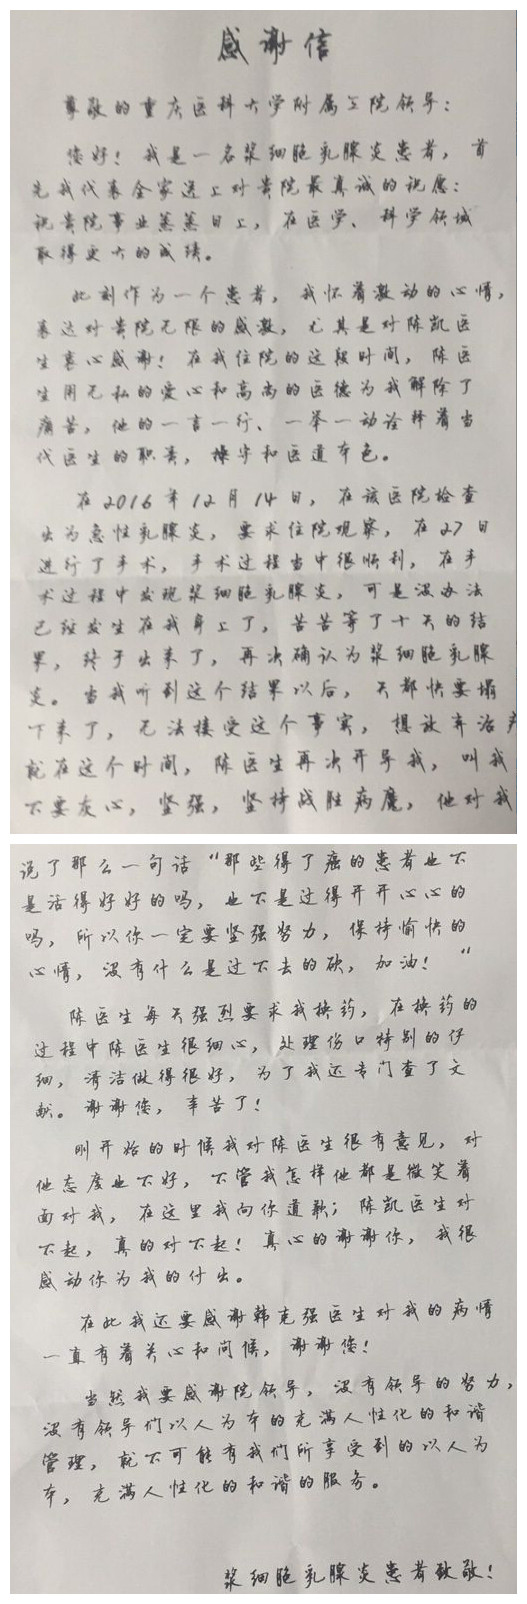 感谢信
尊敬的重庆医科大学附属三院领导：
您好！我是一名浆细胞乳腺炎患者，首
先我代表全家送上对贵院最真诚的祝愿：
祝贵院事业蒸蒸日上，在医学、科学领域
取得更大的成绩。
此刻作为一个患者，我怀着激动的心情，
表达对贵院无限的感激，尤其是对陈凯医
生衷心感谢！在我住院的这段时间，陈医
生用无私的爱心和高尚的医德为我解除了
痛苦，他的一言一行、一举一动诠释着当
代医生的职责，操华和医道本色。
在2016年12月14日，在该医院检查
出为急性乳腺炎，要求住院观察，在27日
进行了手术，手术过程当中很顺利，在手
术过程中发现浆细胞乳腺炎，可是没办法
已经发生在我身上了，苦苦等了十天的结
果，终于出来了，再次确认为浆细胞乳腺
炎。当我听到这个结果以后，天都快要塌
下来了，无法接受这个事实，想放弃治疗
就在这个时间，陈医生再次开导我，叫我
不要灰心，坚强，坚持战胜病魔，他对我
说了那么一句话“那些得了癌的患者也不
是活得好好的吗，也不是过得开开心心的
吗，所以你一定要坚强努力，保持愉快的
心情，没有什么是过不去的砍，加油！”
陈医生每天强烈要求我换药，在换药的
过程中陈医生很细心，处理伤口特别的仔
细，清洁做得很好，为了我还专门查了文
献。谢谢您，辛苦了！
刚开始的时候我对陈医生很有意见，对
他态度也不好，不管我怎样他都是微笑着
面对我，在这里我向你道歉；陈凯医生对
不起，真的对不起！真心的谢谢你，我很
感动你为我的付出。
在此我还要感谢韩克强医生对我的病情
一直有着关心和问候，谢谢您！
当然我要感谢院领导，没有领导的努力，
没有领导们以人为本的充满人性化的和谐
管理，就不可能有我们所享受到的以人为
本，充满人性化的和谐的服务。
浆细胞乳腺炎患者致敬！